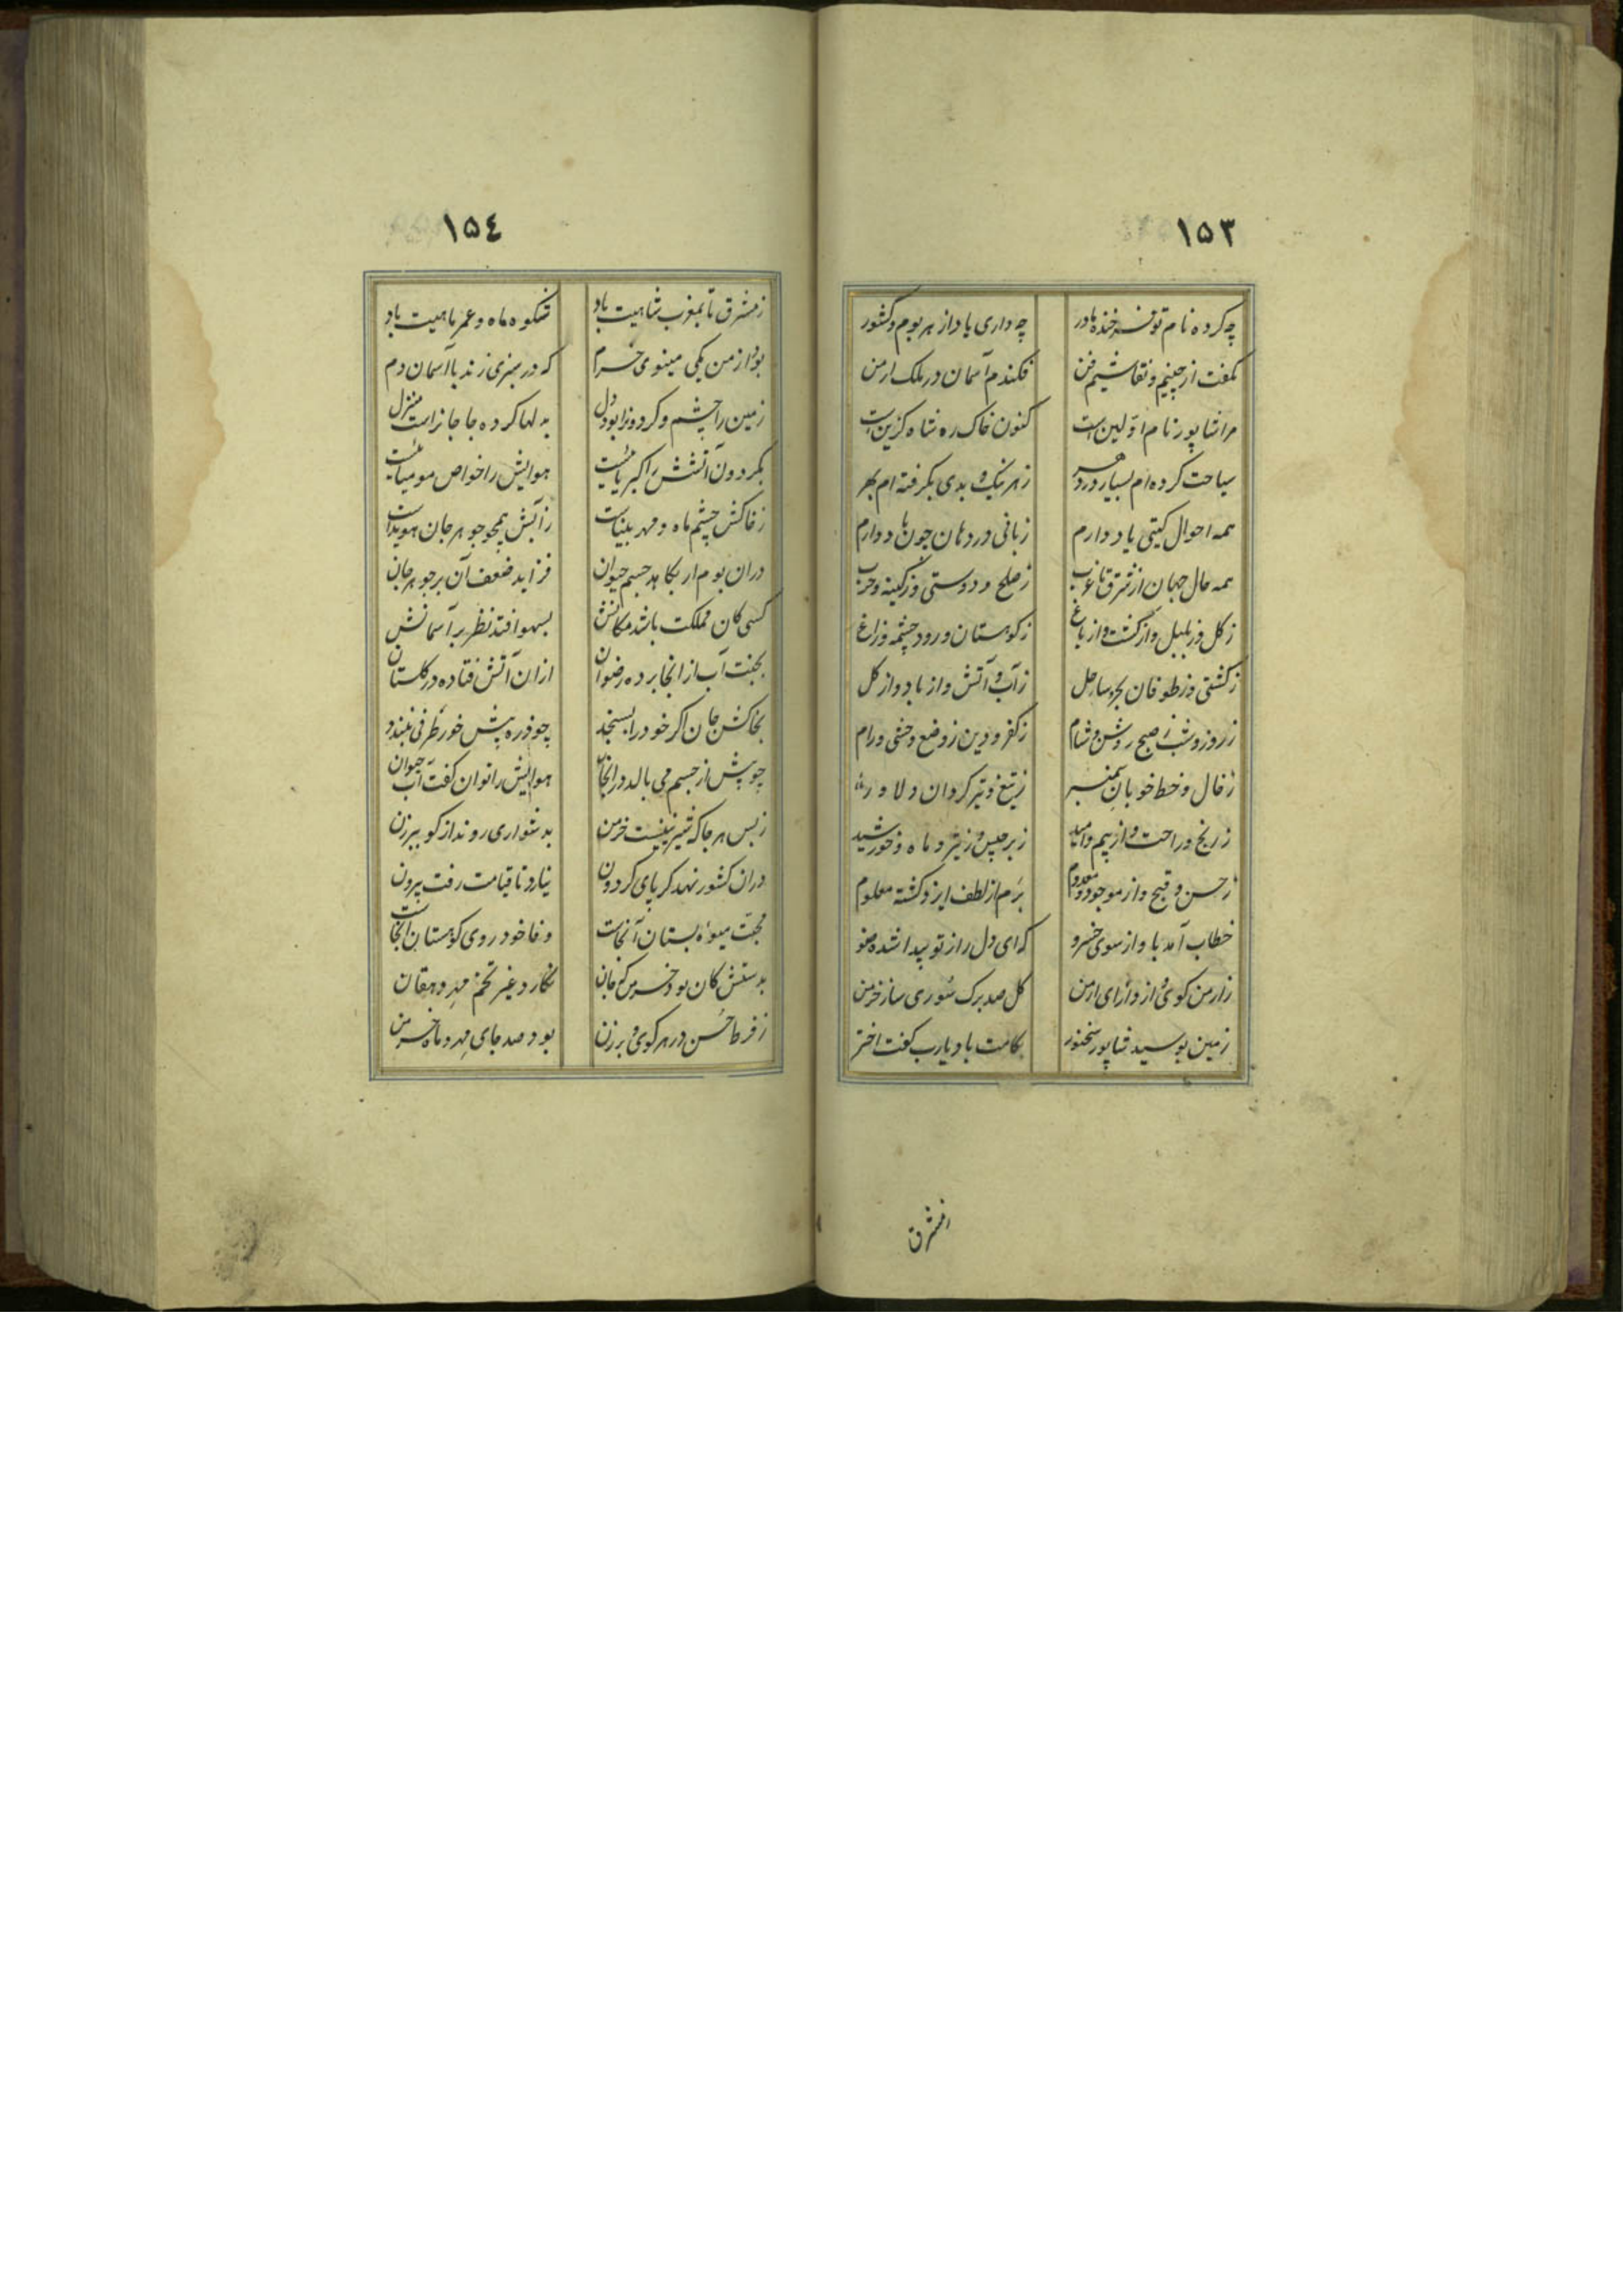 ١۵٣
چه کرده نام تو فرخنده مادر
چه داری یاد از هر بوم و کشور
بگفت از چینم و نقاشیم فن
فکندم آسمان در ملک ارمن
مرا شاپور نام اولین است
کنون خاک ره شاه گزین است
سیاحت کرده ام بسیار در دهر
ز هر نیک و بدی بگرفته ام بهر
همه احوال گیتی یاد دارم
زبانی در دهان چون باد دارم
همه حال جهان از شرق تا غرب
ز صلح و دوستی وز کینه و حرب
ز گل وز بلبل و از گشت و از باغ
ز کوهستان و رود چشمه و زاغ
ز کشتی وز طوفان بحر و ساحل
ز آب و آتش و از باد و از گل
ز روز و شب ز صبح روشن و شام
ز کفر و دین ز وضع وحشی و رام
ز خال و خط خوبان سمنبر
ز تیغ و تیر گردان دلاور
ز رنج و راحت و از بیم و امید
ز برجیس و ز تیر و ماه و خورشید
ز حسن و قبح و از موجود و معدوم
برم از لطف ایزد گشته معلوم
خطاب آمد باو از سوی خسرو
که ای دل را ز تو پیدا شده ضو
ز ارمن کوی از دارای ارمن
گل صد برگ سوری ساز خرمن
زمین بوسید شاپور سخنور
بکامت باد یارب گفت اختر
ازمشرق
١۵٤
ز مشرق تا بمغرب شاهیت باد
شکوه ماه و عمر ماهیت باد
بود ارمن یکی مینوی خرم
که در سبزی زند با آسمان دم
زمین را چشم و گردون را بود دل
بدلها کرده جا جانراست منزل
بگردون آتشش را کبریائیست
هوایش را خواص مومیائیست
ز خاکش چشم ماه و مهر بیناست
ز آبش همچو جوهر جان هویداست
در آن بوم ار بکاهد جسم حیوان
فزاید ضعف آن بر جوهر جان
کسی کان مملکت باشد مکانش
بسهو افتد نظر بر آسمانش
بجنت آب از انجا برده رضوان
از ان آتش فتاده در گلستان
بخاکش جان اگر خود را بسنجد
چو ذره پیش خور طرفی نبندد
چو پیش از جسم می بالد در انجا
هوایش را توان گفت آب حیوان
ز بس هر جا که شیرینیست خرمن
بدشواری روند از کو ببرزن
در ان کشور نهد گر پای گردون
نیارد تا قیامت رفت بیرون
محبت میوهٔ بستان آنجاست
وفا خود روی کوهستان آنجاست
بدستش کان بود خرمن که جان
نکارد غیر تخم مهر دهقان
ز فرط حسن در هر کوی و برزن
بود صد جای مهر و ماه خرمن